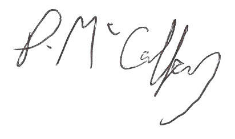 P. McCaffery